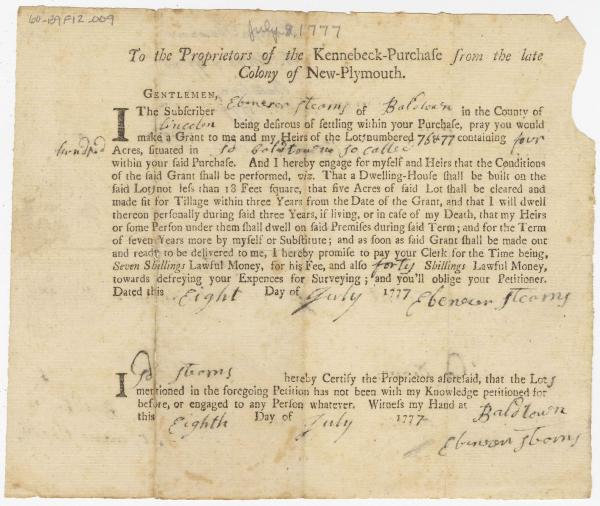 60-B9F12.009
July 8, 1777
To the Proprietors of the Kennebeck-Purchaſe from the late
Colony of New-Plymouth.
GENTLEMEN,
I The Subſcriber Ebenezer Stearns of Baldtown in the County of
Lincoln being deſirous of ſettling within your Purchaſe, pray you would
make a Grant to me and my Heirs of the Lots numbered 76&77 containing four
hundred Acres, ſituated in so Baldtowne so callee
within your ſaid Purchaſe. And I hereby engage for myſelf and Heirs that the Conditions
of the ſaid Grant ſhall be performed, viz. That a Dwelling-Houſe ſhall be built on the
ſaid Lots not leſs than 18 Feet ſquare, that five Acres of ſaid Lot ſhall be cleared and
made fit for Tillage within three Years from the Date of the Grant, and that I will dwell
thereon perſonally during ſaid three Years, if living, or in caſe of my Death, that my Heirs
or ſome Perſon under them ſhall dwell on ſaid Premiſes during ſaid Term; and for the Term
of ſeven Years more by myſelf or Subſtitute; and as ſoon as ſaid Grant ſhall be made out
and ready to be delivered to me, I hereby promiſe to pay your Clerk for the Time being,
Seven Shillings Lawful Money, for his Fee, and alſo forty Shillings Lawful Money,
towards defreying your Expences for Surveying; and you'll oblige your Petitioner.
Dated this Eight Day of July 1777 Ebenezer Stearns
I Stearns hereby Certify the Proprietors aforeſaid, that the Lots
mentioned in the foregoing Petition has not been with my Knowledge petitioned for
before, or engaged to any Perſon whatever. Witneſs my Hand at Baldtown
this Eighth Day of July 1777
Ebenezer Stearns